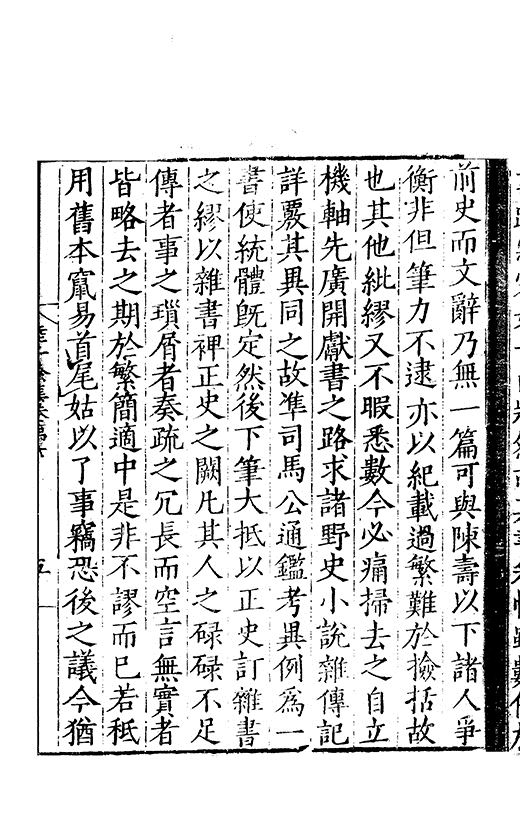 前史而文辭乃無一篇可與陳壽以下諸人爭
衡非但筆力不逮亦以紀載過繁難於撿括故
也其他紕繆又不暇悉數今必痛掃去之自立
機軸先廣開獻書之路求諸野史小說雜傳記
詳覈其異同之故準司馬公通鑑考異例為一
書使統體旣定然後下筆大抵以正史訂雜書
之繆以雜書裨正史之闕凡其人之碌碌不足
傳者事之瑣屑者奏疏之冗長而空言無實者
皆略去之期於繁簡適中是非不謬而已若秪
用舊本竄易首尾姑以了事竊恐後之議今猶
五